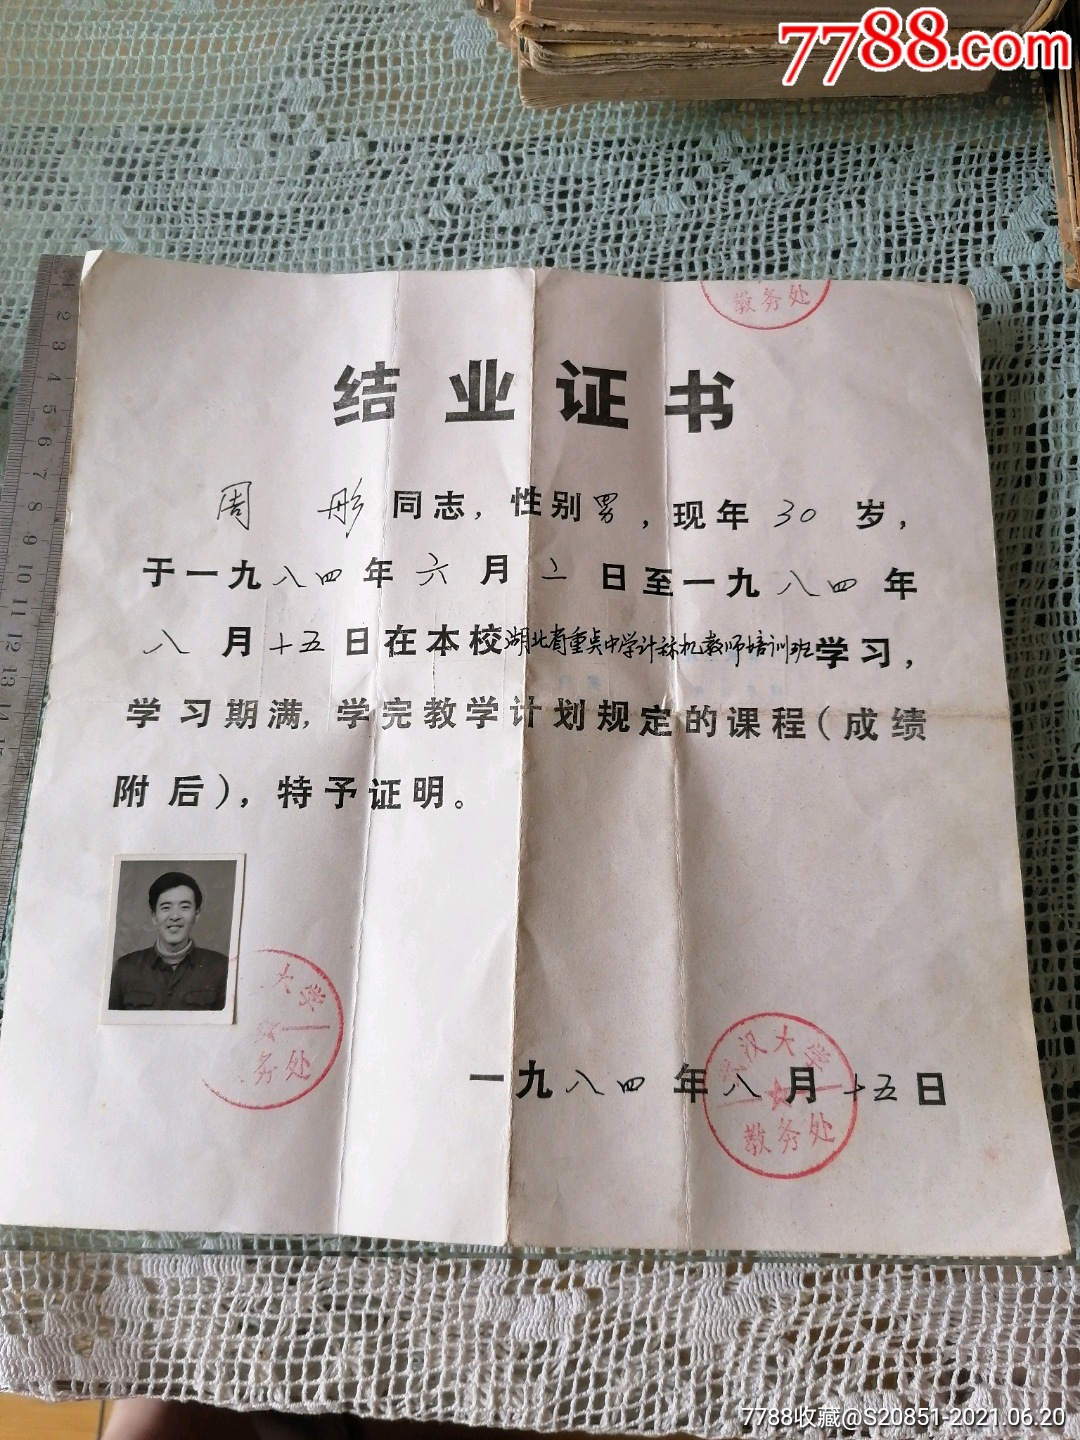 7788.com
教务处
结业证书
周彤同志，性别男，现年30岁，
于一九八四年六月二日至一九八四年
八月十五日在本校湖北省重点中学计标机教师培训班学习，
学习期满，学完教学计划规定的课程（成绩
附后），特予证明。
大学
务处
武汉大学
一九八四年八月十五日
教务处
7788收藏@S20851-2021.06.20